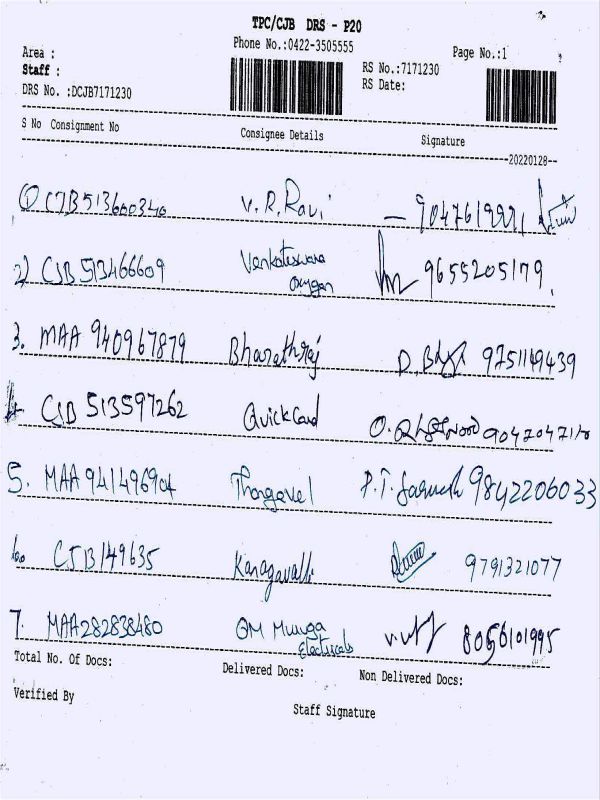 TPC/CJB DRS - P20
Phone No.:0422-3505555
Area :
Page No.:1
Staff :
RS No.:7171230
DRS No. :DCJB7171230
RS Date:
S No Consignment No Consignee Details Signature
--20220128--
1 CJB513600340 V.R.Ravi
2) CJB 513466609 Venkateswara Oxygen 9655205179
3. MAA 940967879 Bharathraj 9751149439
4 CJB 513597262 Quick Card
5. MAA 941496904 Thangavel 9842206033
6. CJB149635 Kanagavalli 9791321077
7. MAA282838480 OM Muruga Electricals
Total No. Of Docs: Delivered Docs: Non Delivered Docs:
Verified By
Staff Signature